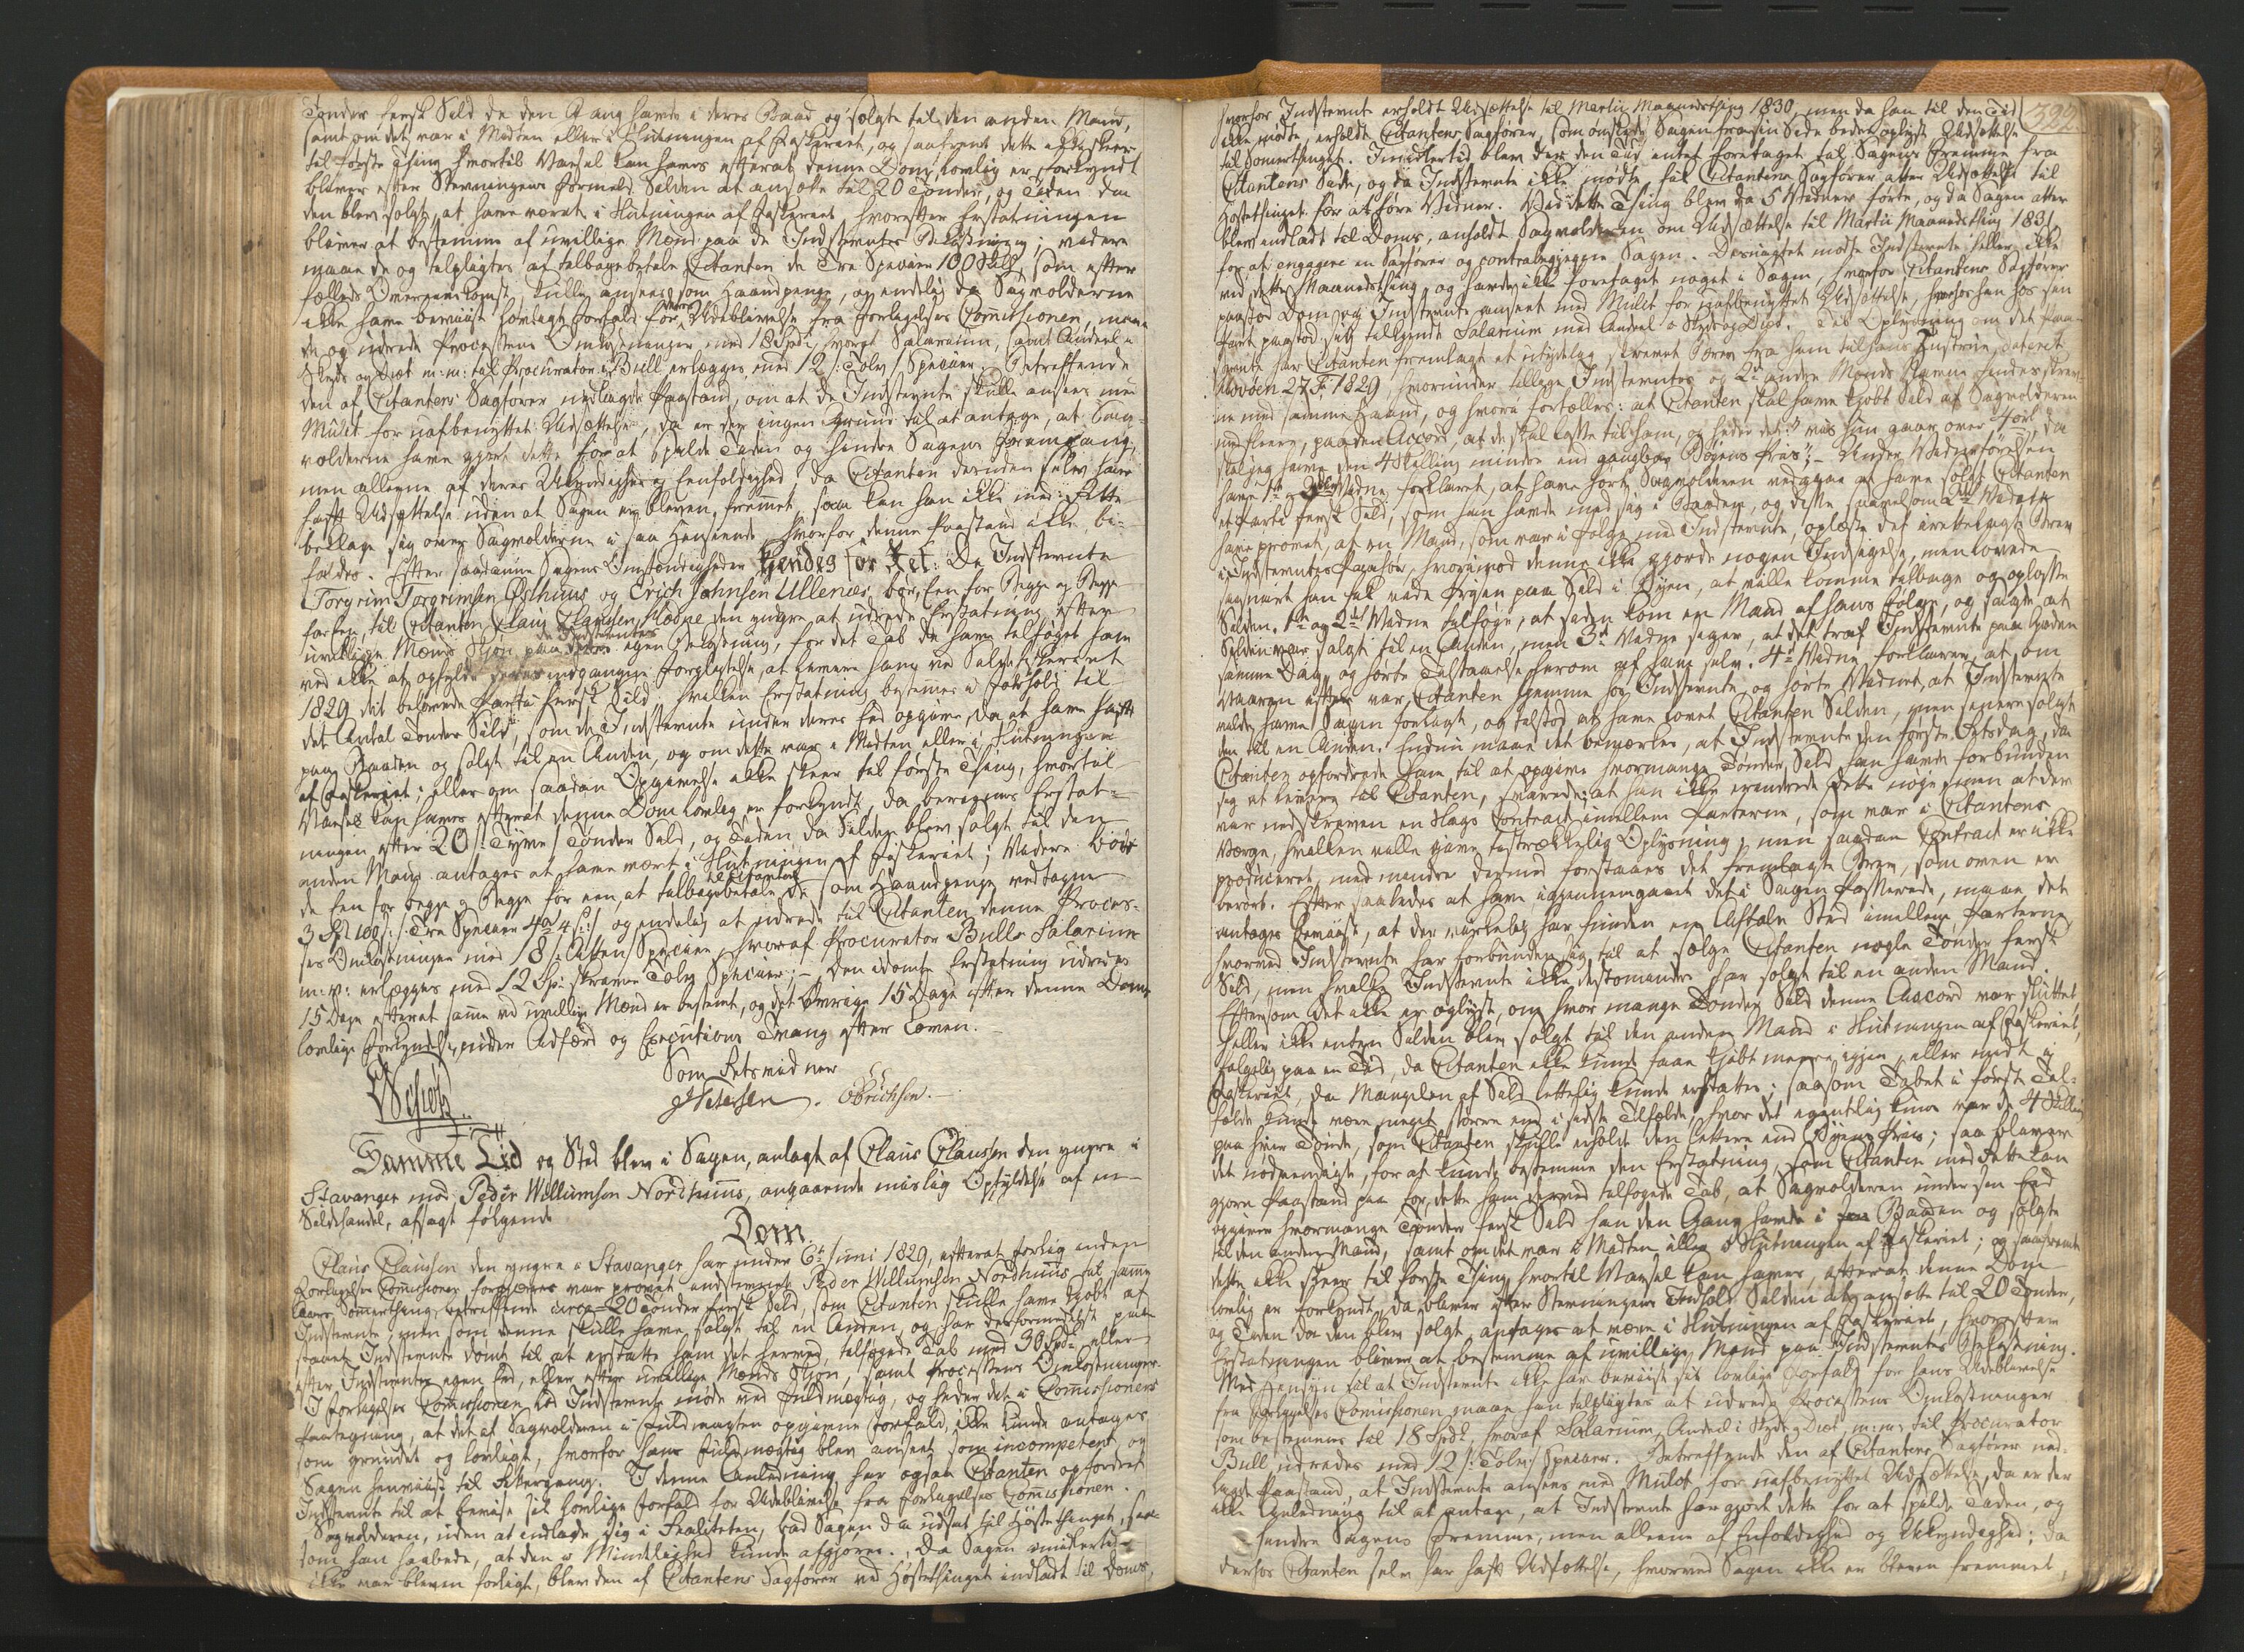 Tønder fersk Sild de den Gang havde i deres Baad og solgte til den anden Mand,
samt om det var i Midten eller i Slutningen af Fiskeriet, og saafremt dette ikke skeer
til første Thing hvortil Varsel kan haves efterat denne Dom lovlig er forkyndt
bliver efter Stevningens Formeld Silden at ansætte til 20 Tønder, og Tiden da
den blev solgt, at have været i Slutningen af Fiskeriet, hvorefter Erstatningen
bliver at bestemme af uvillige Mænd paa de Indstevntes Bekostning; videre
maae de og tilpligtes at tilbagebetale Citanten de Tre Specier 100 Skill som efter
fælleds Overeenskomst, skulle ansees som Haandpenge, og endelig da Sagvolderne
ikke have beviist lovligt Forfald for deres Udeblivelse fra Forligelses Commissionen, maae
de og udrede Processens Omkostninger med 18 Spd, hvoraf Salarium, samt Andeel i
Skyds og Diæt m: m: til Procurator Bull erlægges med 12 /: Tolv / Specier. Betreffende
den af Citantens Sagfører nedlagde Paastand, om at de Indstevnte skulle ansees med
Mulct for uafbenyttet Udsættelse, da er der ingen Grund til at antage, at Sag-
volderne have gjort dette for at spilde Tiden og hindre Sagens Fremgang,
men alleene af deres Ukyndighed og Eenfoldighed, da Citanten desuden selv har
havt Udsættelse uden at Sagen er bleven fremmet, saa kan han ikke med Rette
beklage sig over Sagvolderne i saa Henseende, hvorfor denne Paastand ikke bi-
faldes. Efter saadanne Sagens Omstændigheder kiendes for Ret: De Indstevnte
Torgrim Torgrimsen Østhuus og Erich Johnsen Ullenæs, bør, Een for Begge og Begge
for Een, til Citanten Claus Clausen Hoope den yngre at udrede Erstatning efter
uvillige Mænds Skjøn paa de Indstevntes egen Bekostning, for det Tab de have tilføiet ham
ved ikke at opfylde deres indgangne Forpligtelse, at levere ham ved Silde Fiskeriet
1829 det belovede Partie fersk Sild, hvilken Erstatning bestemmes i Forhold til
det Antal Tønder Sild, som de Indstevnte under deres Eed opgive, da at have havt
paa Baaden og solgt til en Anden, og om dette var i Midten eller i Slutningen
af Fiskeriet; eller om saadan Opgivelse ikke skeer til første Thing, hvortil
Varsel kan haves efterat denne Dom lovlig er forkyndt, da beregnes Erstat-
ningen efter 20 /: Tyve / Tønder Sild, og Tiden da Silden blev solgt til den
anden Mand antages at have vært i Slutningen af Fiskeriet; Videre bør
de Een for Begge og Begge for een, at tilbagebetale til Citanten de som Haandpenge vedtagne
3 Spd 100 /: Tre Specier 4 Ort 4 s / og endelig at udrede til Citanten denne Proces-
ses Omkostninger med 18 /: Atten / Specier, hvoraf Procurator Bulls Salarium
m: v: erlægges med 12 Sp: skriver Tolv Specier; – Den idømte Erstatning udredes
15 Dage efterat samme ved uvillige Mænd er bestemt, og det Øvrige 15 Dage efter denne Doms
lovlige Forkyndelse, under Adfærd og Executions Tvang efter Loven. –
Som Retsvidner
Schiøtz
J Petersen. O Erichsen. –
Samme Tid og Sted blev i Sagen, anlagt af Claus Claussen den yngre i
Stavanger mod Peder Willumsen Nordhuus, angaaende mislig Opfyldelse af en
Sildehandel, afsagt følgende
Dom.
Claus Claussen den yngre i Stavanger har under 6te Juni 1829, efterat Forlig inden
Forligelses Commissionen forgjeves var prøvet, indstevnet Peder Willumsen Nordhuus til samme
Aars Sommerthing, betreffende circa 20 Tønder fersk Sild, som Citanten skulle have kjøbt af
Indstevnte, men som denne skulle have solgt til en Anden, og har desformedelst paa-
staaet Indstevnte dømt til at erstatte ham det herved tilføiede Tab med 30 Spd, eller
efter Indstevntes egen Eed, eller efter uvillige Mænds Skjøn, samt Processens Omkostninger.
I Forligelses Commissionen lod Indstevnte møde ved Fuldmægtig, og heder det i Commissionens
Paategning, at det af Sagvolderen i Fuldmagten opgivne Forfald, ikke kunde antages
som grundet og lovligt, hvorfor hans Fuldmægtig blev anseet som incompetent, og
Sagen henviist til Rettergang. I denne Anledning har ogsaa Citanten opfordret
Indstevnte til at bevise sit lovlige Forfald for Udeblivelse fra Forligelses Commissionen.
Sagvolderen, uden at indlade sig i Realiteten, bad Sagen da udsat til Høstethinget, saa-
som han haabede, at den i Mindelighed kunde afgjøres. Da Sagen imidlertid
ikke var bleven forligt, blev den af Citantens Sagfører ved Høstethinget indladt til Doms,
322
hvorfor Indstevnte erholdt Udsættelse til Martii Maanedsthing 1830, men da han til den Tid
ikke mødte, erholdt Citantens Sagfører, som ønskede Sagen fra sin Side bedre oplyst Udsættelse
til Somerthinget. Imidlertid blev der den Tid intet foretaget til Sagens Fremme fra
Citantens Side, og da Indstevnte ikke mødte, fik Citantens Sagfører atter Udsættelse til
Høstethinget for at føre Vidner. Ved dette Thing blev da 5 Vidner førte, og da Sagen atter
blev indladt til Doms, anholdt Sagvolderen om Udsættelse til Martii Maanedsthing 1831,
for at engagere en Sagfører og contrabegjegne Sagen. Desuagtet mødte Indstevnte heller ikke
ved dette Maanedsthing, og havde ikke foretaget noget i Sagen, hvorfor Citantens Sagfører
paastod Dom og Indstevnte anseet med Mulct for uafbenyttet Udsættelse, hvorhos han hos sin
Part paastod sig tilkjendt Salarium med Andeel i Skyds og Diæt. Til Oplysning om det paa-
stevnte har Citanten fremlagt et utydelig skrevet Brev fra ham til hans Hustrue, dateret
Hovøen 27 F. 1829, hvorunder tillige Indstevntes og 2de andre Mænds Navne findes skrev-
ne med samme Haand, og hvori fortælles: at Citanten skal have kjøbt Sild af Sagvolderen
med flere, paa den Accord, at de skal losse til ham, og heder det: "vis hun gaar over 4 ort, da
skal jeg have den 4 Skilling mindre end gangbar Byens Priis"; – Under Vidneførselen
have 1te og 3die Vidne forklaret, at have hørt Sagvolderen vedgaae at have solgt Citanten
et Parti fersk Sild, som han havde med sig i Baaden, og disse saavelsom 2det Vidne
have prøvet, at en Mand, som var i Følge med Indstevnte, oplæste det irettelagte Brev
i Indstevntes Paahør, hvorimod denne ikke gjorde nogen Indsigelse, men lovede
saasnart han fik vide Prisen paa Sild i Byen, at ville komme tilbage og oplosse
Silden. 1te og 2det Vidne tilføie, at siden kom en Mand af hans Følge, og sagde at
Silden var solgt til en Anden, men 3die Vidne siger, at det traf Indstevnte paa Gaden
samme Dag og hørte Tilstaaelse herom af ham selv. 4de Vidne forklarer, at om
Vaaren efter var Citanten hjemme hos Indstevnte og hørte Vidnet, at Indstevnte
vilde have Sagen forligt, og tilstod at have lovet Citanten Silden, men senere solgt
den til en Anden. Endnu maae det bemærkes, at Indstevnte den første Retsdag, da
Citanten opfordrede ham til at opgive hvormange Tønder Sild han havde forbunden
sig at levere til Citanten, svarede, at han ikke erindrede dette nøie, men at der
var nedskreven en Slags Contract imellem Parterne, som var i Citantens
Værge, hvilken ville give tilstrækkelig Oplysning; men saadan Contract er ikke
produceret, med mindre dermed forstaaes det fremlagte Brev, som oven er
berørt. Efter saaledes at have igjennemgaaet det i Sagen Passerede, maae det
antages beviist, at der virkelig har funden en Aftale Sted imellem Parterne
hvorved Indstevnte har forbunden sig til at sælge Citanten nogle Tønder fersk
Sild, men hvilke Indstevnte ikke destomindre har solgt til en anden Mand.
Eftersom det ikke er oplyst, om hvor mange Tønder Sild denne Accord var sluttet,
heller ikke enten Silden blev solgt til den anden Mand i Slutningen af Fiskeriet,
følgelig paa en Tid, da Citanten ikke kunde faae kjøbt mere igjen, eller midt i
Fiskeriet, da Mangelen af Sild lettelig kunde erstattes; saasom Tabet i første Til-
fælde kunde være meget større end i sidste Tilfælde, hvor det egentlig kun var de 4 Skilling
paa hver Tønde, som Citanten skulle erholde den lettere end Byens Priis; saa bliver
det nødvendigt, for at kunde bestemme den Erstatning, som Citanten med Rette kan
gjøre Paastand paa for dette ham derved tilføiede Tab, at Sagvolderen under sin Eed
opgiver hvormange Tønder fersk Sild han den Gang havde i Baaden og solgte
til den anden Mand, samt om det var i Midten eller i Slutningen af Fiskeriet; og saafremt
dette ikke skeer til første Thing hvortil Varsel kan haves, efterat denne Dom
lovlig er forkyndt, da bliver efter Stevningens Indhold Silden at ansætte til 20 Tønder,
og Tiden da den blev solgt, antages at være i Slutningen af Fiskeriet, hvorefter
Erstatningen bliver at bestemme af uvillige Mænd paa Indstevntes Bekostning.
Med Hensyn til at Indstevnte ikke har beviist sit lovlige Forfald for hans Udeblivelse
fra Forligelses Commissionen, maae han tilpligtes at udrede Processens Omkostninger
som bestemmes til 18 Spd, hvoraf Salarium, Andeel i Skyds og Diæt, m: m: til Procurator
Bull udredes med 12 /: Tolv / Specier. Betreffende den af Citantens Sagfører ned-
lagde Paastand, at Indstevnte ansees med Mulct for uafbenyttet Udsættelse, da er der
ikke Anledning til at antage, at Indstevnte har gjort dette for at spilde Tiden, og
hindre Sagens Fremme, men alleene af Enfoldighed og Ukyndighed; da
derhos Citanten selv har havt Udsættelse, hvorved Sagen ikke er bleven fremmet,